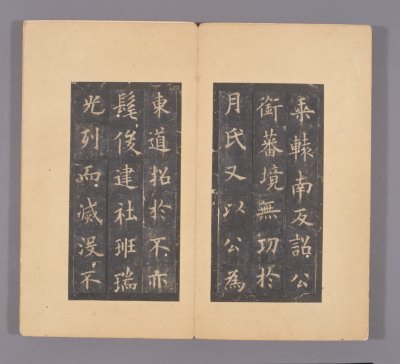 乗轅南反詔公
銜蕃境無功於
月氏又以公為
東道招於不亦
髦俊建社班瑞
光列而滅没不